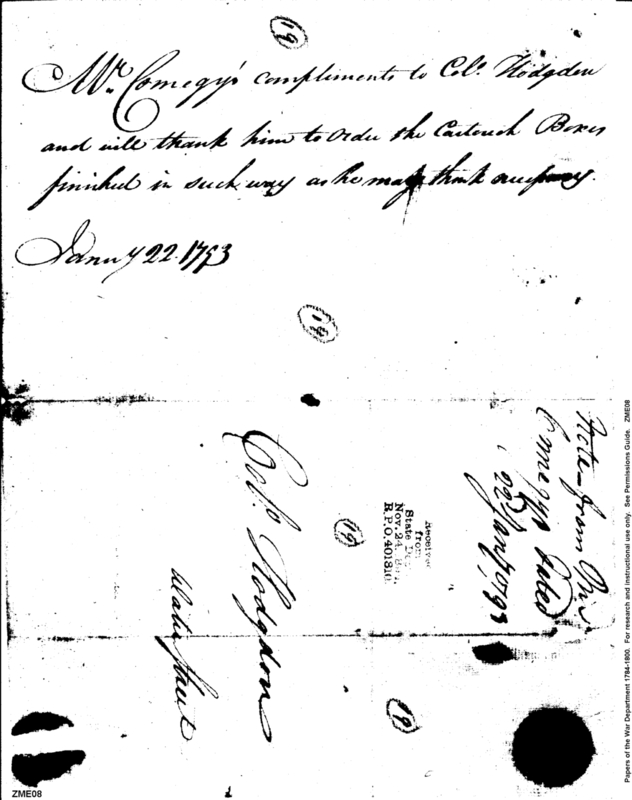 19
Mr. Comegys compliments to Col. Hodgdon
and will thank him to order the Cartouch Boxes
finished in such way as he may think necessary.
Januy 22. 1793
19
Note from Mr.
Comegys dated
22 Jany 1793
Received
from
State
Nov. 24
R.P.O. 401810
19
Col. Hodgdon
Water Street
19
ZME08
Papers of the War Department 1784-1800. For research and instructional use only. See Permissions Guide. ZME08